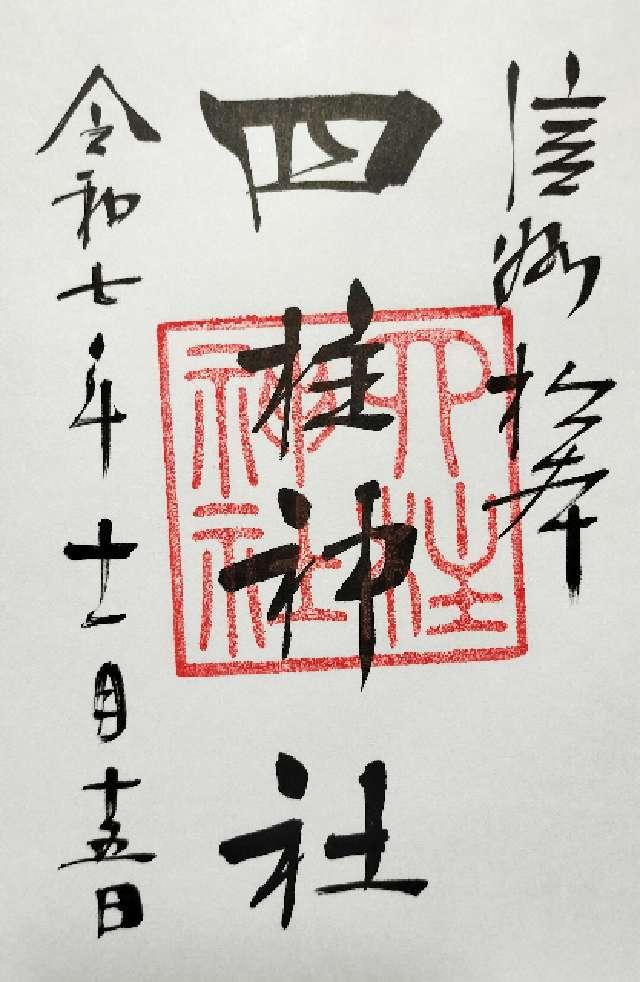 信州松本
四柱神社
四柱神社
令和七年十一月十五日